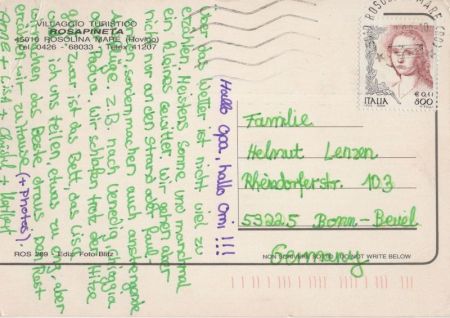 VILLAGGIO TURISTICO
ROSAPINETA
45010 ROSOLINA MARE (Rovigo)
Tel. 0426 - 68033 - Telex 41207
ROSOLINA MARE
ITALIA
€ 0,41
800
Hallo Opa, hallo Omi!!!
Über das Wetter ist nicht viel zu
erzählen. Meistens Sonne und manchmal
ein kleines Gewitter. Wir gehen aber
nicht nur an den Strand oder faul-
sondern machen auch anstrengende
z.B. nach Venedig
Padua. Wir schlafen trotz der Hitze
Zwar ist das Bett, das Lisa
ich uns teilen, etwas zu eng, aber
machen das Beste draus. Den Rest
wir zu Hause (+ Photos).
+ Lisa +
Familie
Helmut Lenzen
Rheindorferstr. 103
53225 Bonn-Beuel
Germany
ROS 289 - Ediz. Foto-Blitz
NON SCRIVERE SOTTO / DO NOT WRITE BELOW